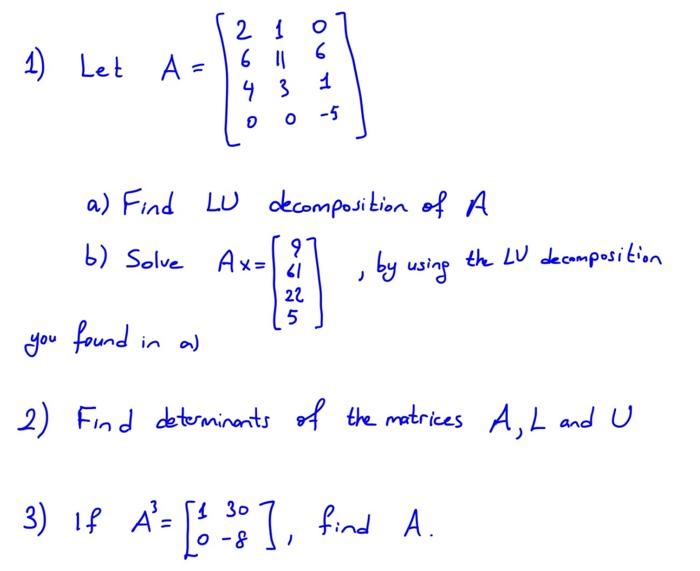 1) Let A = [2 1 0
6 11 6
4 3 1
0 0 -5]
a) Find LU decomposition of A
b) Solve Ax = [9
61
22
5] , by using the LU decomposition
you found in a)
2) Find determinants of the matrices A, L and U
3) If A³ = [1 30
0 -8], find A.